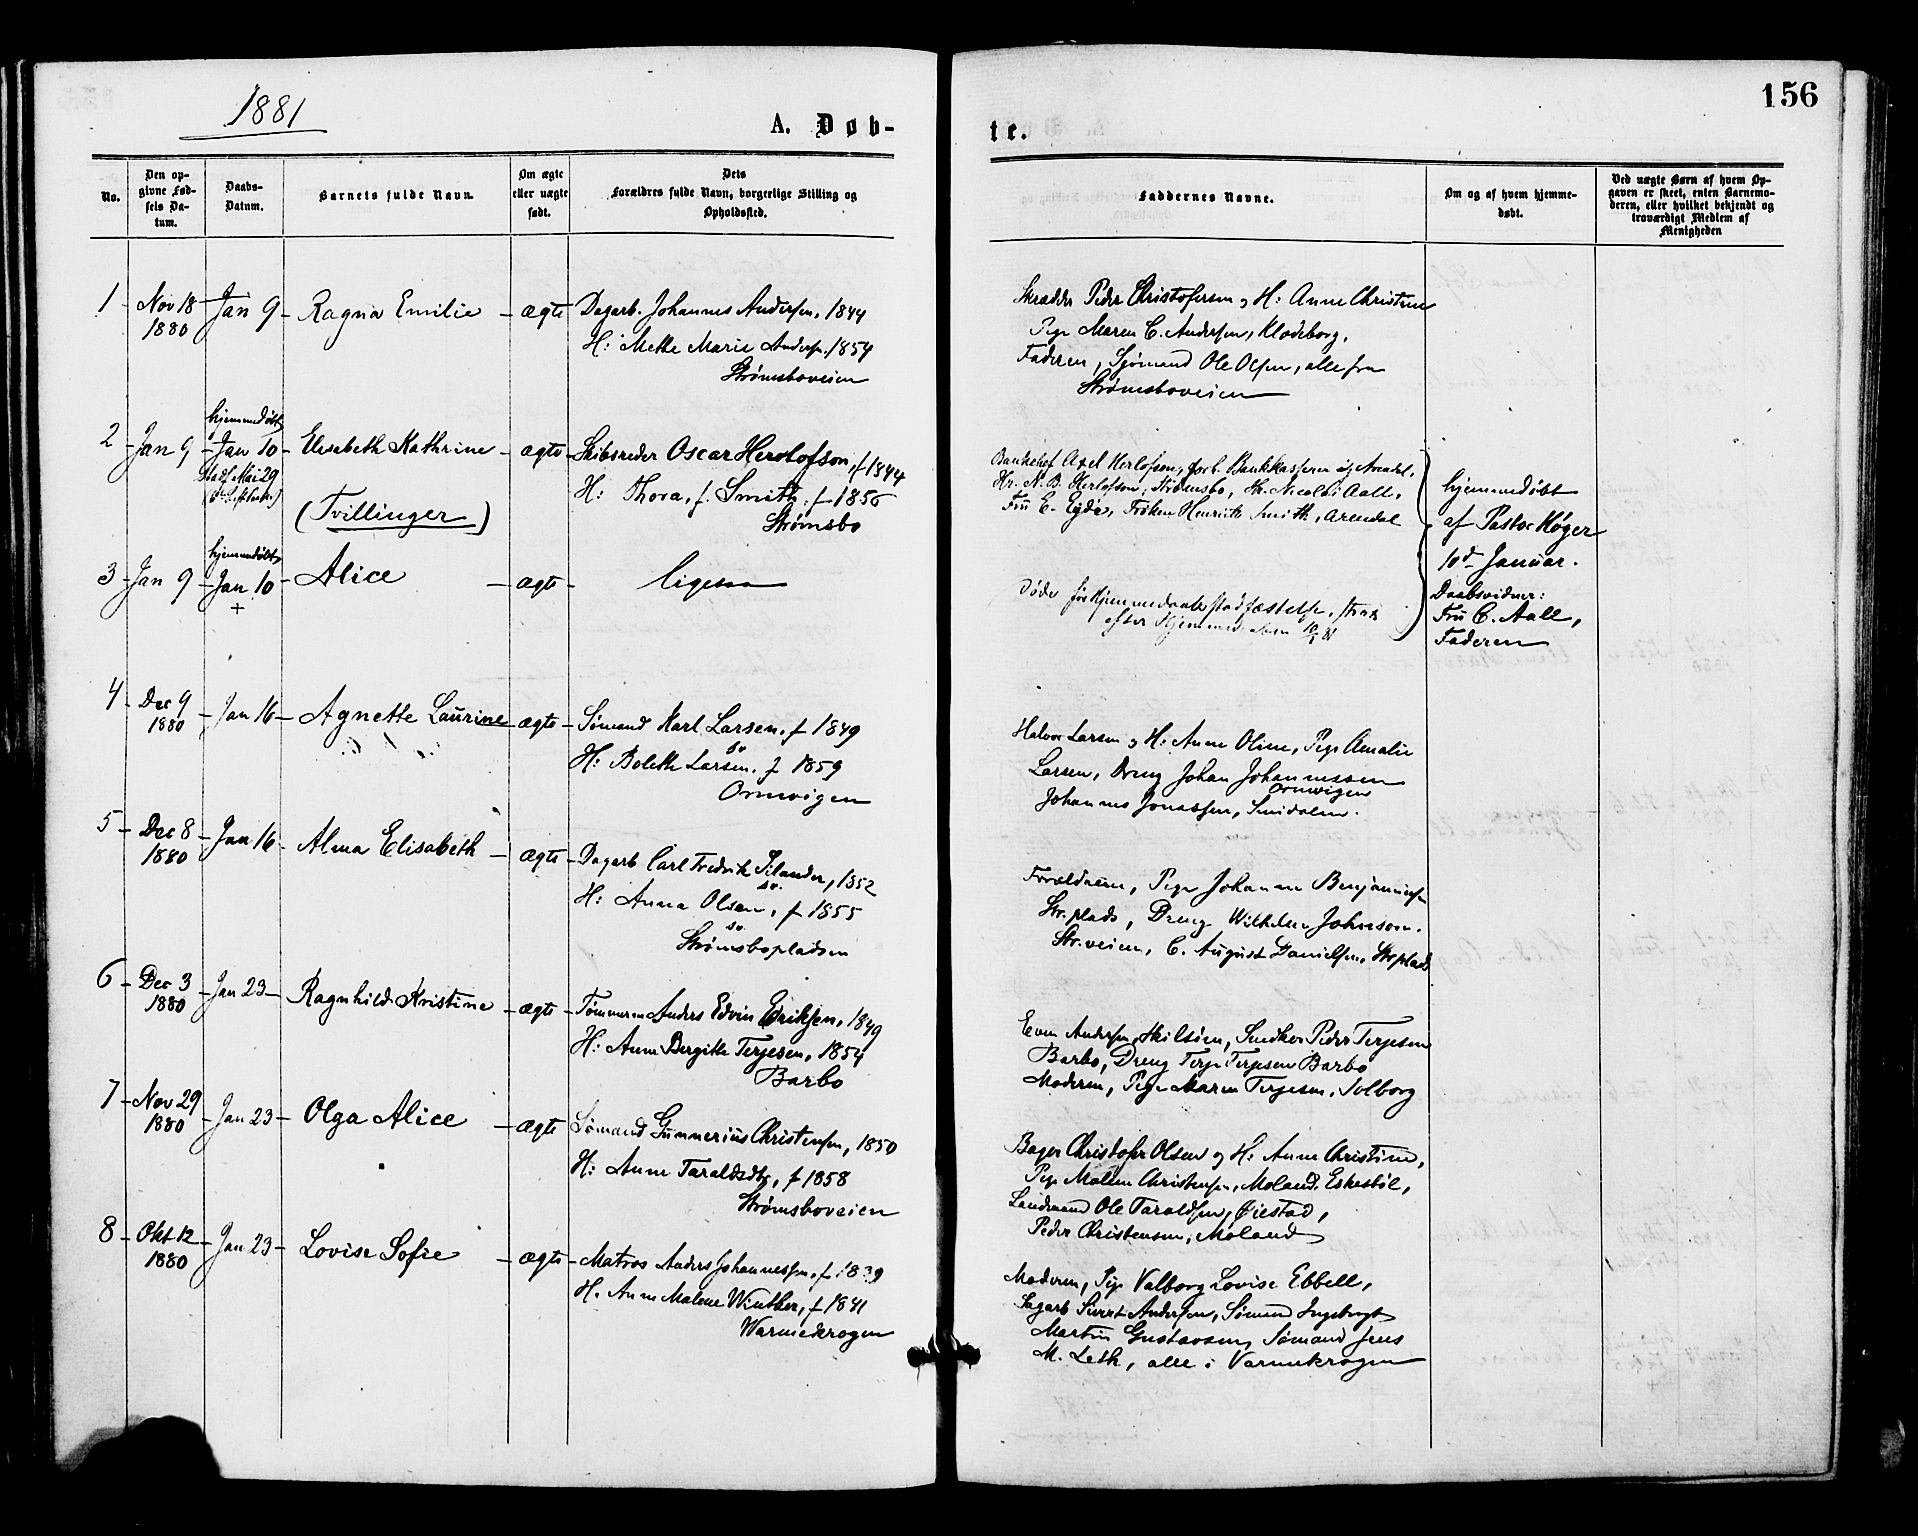 1881
A. Døb-
te.
156
No.
Den op-
givne Fød-
sels Da-
tum.
Daabs-
Datum.
Barnets fulde Navn.
Om ægte
eller uægte
født.
Dets
Forældres fulde Navn, borgerlige Stilling og
Opholdssted.
Faddernes Navne.
Om og af hvem hjemme-
døbt.
Ved uægte Børn af hvem Op-
gaven er skeet, enten Barnemo-
deren, eller hvilket bekjendt og
troværdigt Medlem af
Menigheden
1 Nov 18 Jan 9 Ragna Emilie ægte Dagarb. Johannes Andersen, 1844
1880
H: Mette Marie Anders. 1854
Strømsboveien
Skrædder Peder Christofersen og H: Anne Christine
Pige Maren C. Andersen, Klodeborg,
Faderen, Sjømand Ole Olsen, alle fra
Strømsboveien
2 Jan 9 hjemmedøbt
Jan 10 Elisabeth Kathrine ægte Skibsreder Oscar Herlofson, f 1844
Stadf. Mai 29
H: Thora, f. Smith, f 1856
(Tvillinger)
Strømsbo
Bankchef Axel Herlofson, Bankkasserer Arendal,
Hr. N. B. Herlofson, Strømsbo, Hr. Nicolai Aall,
Fru E. Eyde, Frøken Henriette Smith, Arendal
hjemmedøbt
af Pastor Høyer
10d Januar.
Daabsvidner:
Fru C. Aall,
Faderen
3 Jan 9 hjemmedøbt
Jan 10 Alice ægte ligesaa
+
Døde før Hjemmedaabs stadfæstelse, strax
efter Hjemmed. 10/1 81
4 Dec 9 Jan 16 Agnette Laurine ægte Sømand Karl Larsen, f 1849
1880
H: Bolette Larsen, f 1859
Ormvigen
Halvor Larsen og H: Anne Oline, Pige Amalie
Larsen, Dreng Johan Johannessen
Ormvigen
Johannes Jonassen, Smidalen.
5 Dec 8 Jan 16 Alma Elisabeth ægte Dagarb Carl Fredrik Silander, 1852
1880
sv.
H: Anna Olsen, f 1855
sv.
Strømsbopladsen
Forældrene, Pige Johanne Benjaminsen
Str. plads, Dreng Wilhelm Johnson.
Str. veien, C. August Danielsen, Str plads
6 Dec 3 Jan 23 Ragnhild Kristine ægte Tømmerm Anders Edvin Eriksen, 1849
1880
H: Anne Bergitte Terjesen, 1854
Barbo
Even Andersen, Skilsøen, Snedker Peder Terjesen
Barbo, Dreng Terje Terjesen Barbo
Moderen, Pige Maren Terjesen, Solborg
7 Nov 29 Jan 23 Olga Alice ægte Sømand Gunnerius Christensen, 1850
1880
H: Anne Taraldsdtr, f 1858
Strømsboveien
Bager Christofer Olsen og H: Anne Christine,
Pige Malene Christensen, Moland, Eskesböl,
Landmand Ole Taraldsen, Øiestad,
Peder Christensen, Moland
8 Okt 12 Jan 23 Lovise Sofie ægte Matros Anders Johannessen, f 1839
1880
H. Anne Malene Winther, f 1841
Warmekrogen
Moderen, Pige Valborg Lovise Ebbell,
Dagarb Sivert Andersen, Sømand Ingebregt
Martin Gustavsen, Sømand Jens
M. Leth, alle i Varmekrogen